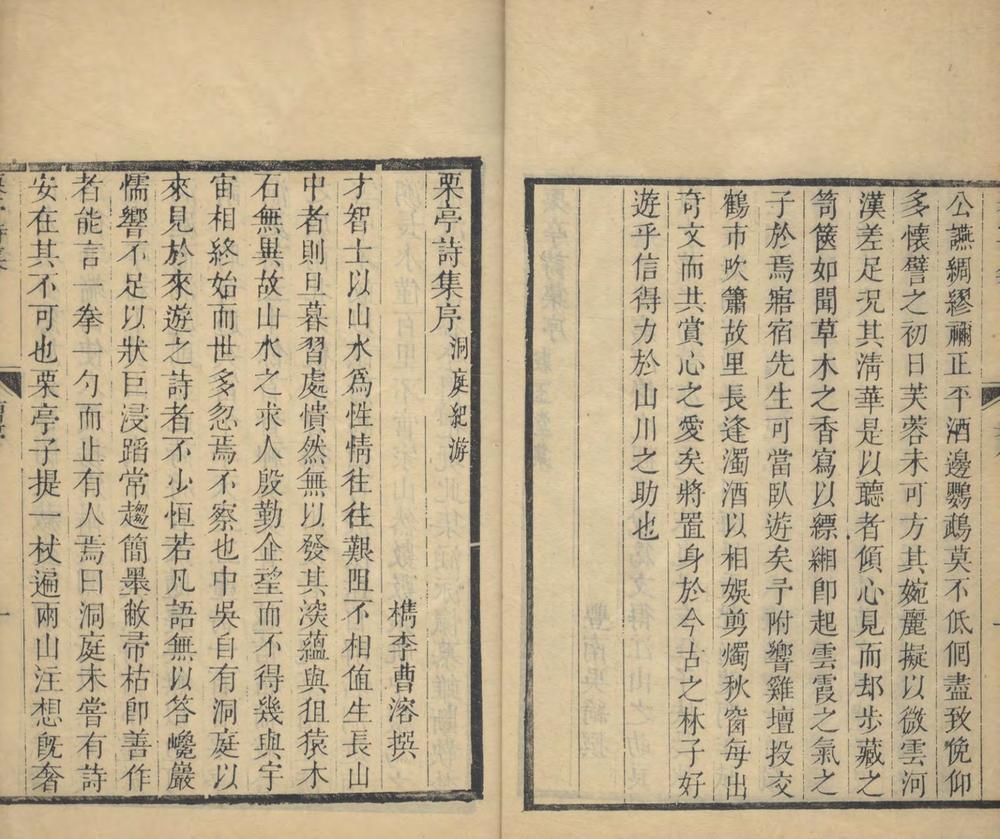 公讌綢繆禰正平酒邊鸚鵡莫不低佪盡致俛仰
多懷譬之初日芙蓉未可方其婉麗擬以微雲河
漢差足況其淸華是以聽者傾心見而却步藏之
笥篋如聞草木之香寫以縹緗卽起雲霞之氣之
子於焉寤宿先生可當臥遊矣予附響雞壇投交
鶴市吹簫故里長逢濁酒以相娛剪燭秋窗每出
奇文而共賞心之愛矣將置身於今古之林子好
遊乎信得力於山川之助也
栗亭詩集序 洞庭紀游
檇李曹溶撰
才智士以山水爲性情往往艱阻不相値生長山
中者則旦暮習處憒然無以發其淡蘊與狙猿木
石無異故山水之求人殷勤企望而不得幾與宇
宙相終始而世多忽焉不察也中吳自有洞庭以
來見於來遊之詩者不少恒若凡語無以答巉巖
懦響不足以狀巨浸蹈常趨簡墨敝帚枯卽善作
者能言一拳一勺而止有人焉曰洞庭未嘗有詩
安在其不可也栗亭子提一杖遍兩山注想旣奢